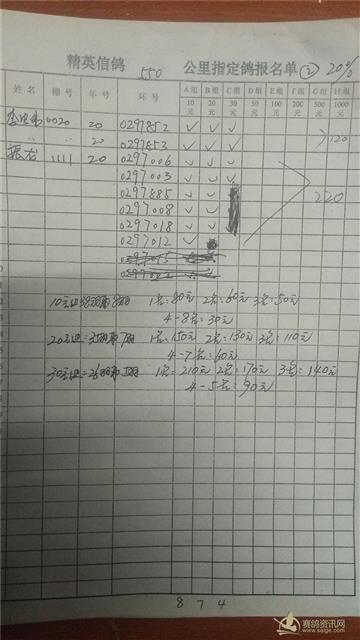 精英信鸽 550 公里指定鸽报名单 ② 20%
姓名 棚号 年号 环号 A组 B组 C组 D组 E组 F组 G组 H组
10元 20元 30元 50元 100元 200元 500元 1000元
0020 20 0297852 ✓ ✓ ✓
20 0297853 ✓ ✓ ✓ 120
1111 20 0297006 ✓ ✓ ✓
0297003 ✓ ✓ ✓
0297885 ✓ ✓ 220
0297008 ✓ ✓
0297018 ✓ ✓
0297012 ✓
10元组: 1名:80元 2名:60元 3名:50元
4-8名:30元
20元组: 1名:150元 2名:130元 3名:110元
4-7名:60元
30元组: 1名:210元 2名:170元 3名:140元
4-5名:90元
874
赛鸽资讯网
www.saige.com